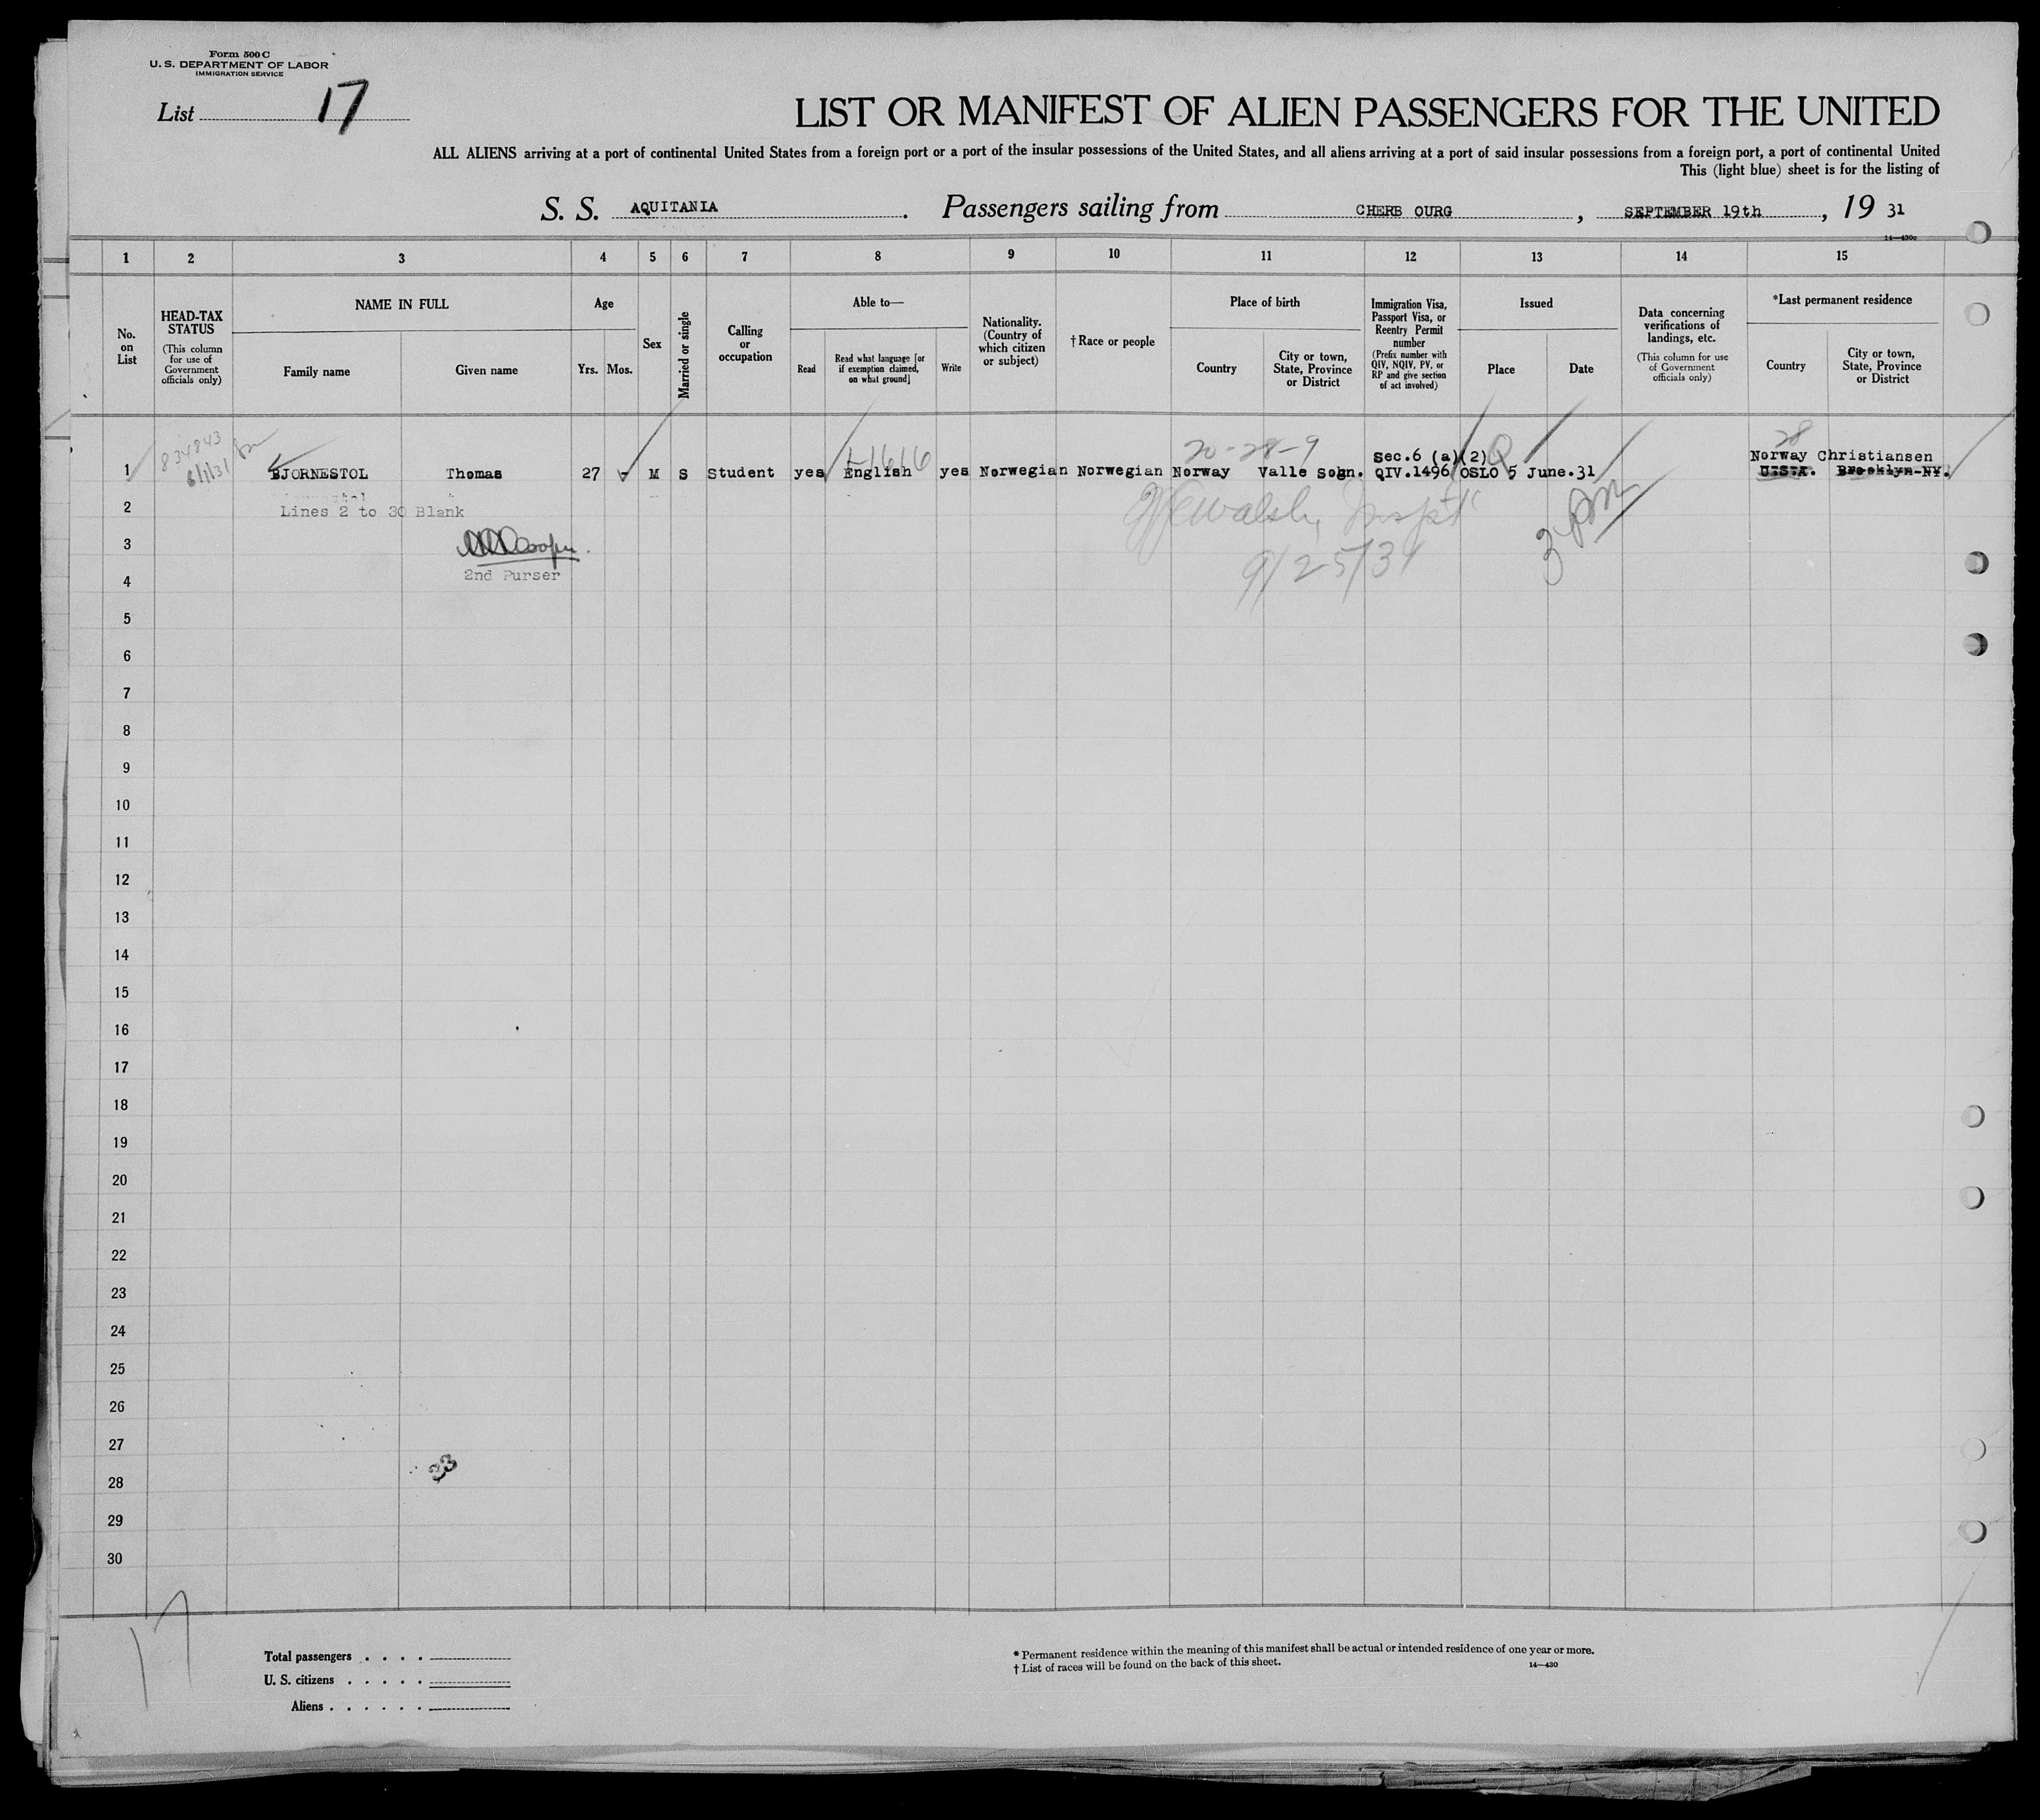 Form 500 C
U. S. DEPARTMENT OF LABOR
IMMIGRATION SERVICE
List 17
LIST OR MANIFEST OF ALIEN PASSENGERS FOR THE UNITED
ALL ALIENS arriving at a port of continental United States from a foreign port or a port of the insular possessions of the United States, and all aliens arriving at a port of said insular possessions from a foreign port, a port of continental United
This (light blue) sheet is for the listing of
S. S. AQUITANIA. Passengers sailing from CHERB OURG, SEPTEMBER 19th, 19 31
14—430c
1 2 3 4 5 6 7 8 9 10 11 12 13 14 15
No. on List
HEAD-TAX STATUS
(This column for use of Government officials only)
NAME IN FULL
Family name
Given name
Age
Yrs. Mos.
Sex
Married or single
Calling or occupation
Able to—
Read
Read what language [or if exemption claimed, on what ground]
Write
Nationality. (Country of which citizen or subject)
†Race or people
Place of birth
Country
City or town, State, Province or District
Immigration Visa, Passport Visa, or Reentry Permit number
(Prefix number with QIV, NQIV, PV, or RP and give section of act involved)
Issued
Place
Date
Data concerning verifications of landings, etc.
(This column for use of Government officials only)
*Last permanent residence
Country
City or town, State, Province or District
834843
6/1/31
1-1616
20-28-9
Q
28
Sec.6 (a)(2)
Norway Christiansen
1 BJORNESTOL Thomas 27 - M S Student yes English yes Norwegian Norwegian Norway Valle Sogn. QIV.1496 OSLO 5 June.31 U.S.A. Brooklyn-NY.
2
Lines 2 to 30 Blank
Walsh Inspt
3 pm
3
Cooper.
9/25/31
2nd Purser
4
5
6
7
8
9
10
11
12
13
14
15
16
17
18
19
20
21
22
23
24
25
26
27
33
28
29
30
17
Total passengers . . . .
U. S. citizens . . . . .
Aliens . . . . . .
* Permanent residence within the meaning of this manifest shall be actual or intended residence of one year or more.
† List of races will be found on the back of this sheet.
14—430